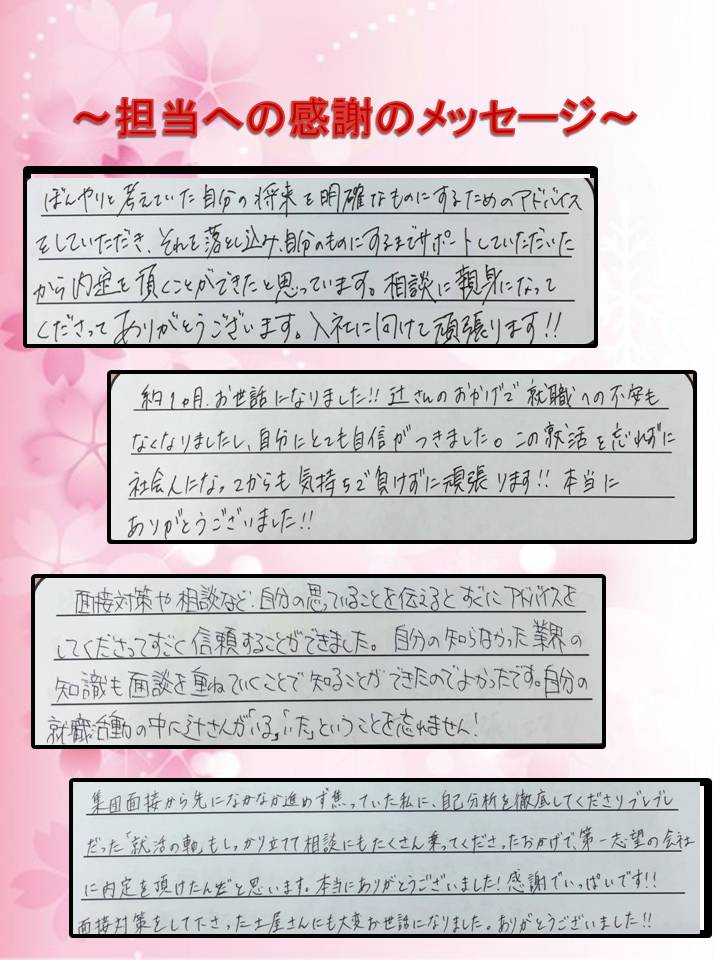 ～担当への感謝のメッセージ～
ぼんやりと考えていた自分の将来を明確なものにするためのアドバイス
をしていただき、それを落とし込み、自分のものにするまでサポートしていただいた
から内定を頂くことができたと思っています。相談に親身になって
くださってありがとうございます。入社に向けて頑張ります!!
約1ヵ月、お世話になりました!! 辻さんのおかげで就職への不安も
なくなりましたし、自分にとても自信がつきました。この就活を忘れずに
社会人になってからも気持ちで負けずに頑張ります!! 本当に
ありがとうございました!!
面接対策や相談など、自分の思っていることを伝えるとすぐにアドバイスを
してくださってすごく信頼することができました。自分の知らなかった業界の
知識も面談を重ねていくことで知ることができたのでよかったです。自分の
就職活動の中に辻さんが「いる」「いた」ということを忘れません!
集団面接から先になかなか進めず焦っていた私に、自己分析を徹底してくださりブレブレ
だった「就活の軸」もしっかり立てて相談にもたくさん乗ってくださったおかげで、第一志望の会社
に内定を頂けたんだと思います。本当にありがとうございました! 感謝でいっぱいです!!
面接対策をして下さった土屋さんにも大変お世話になりました。ありがとうございました!!